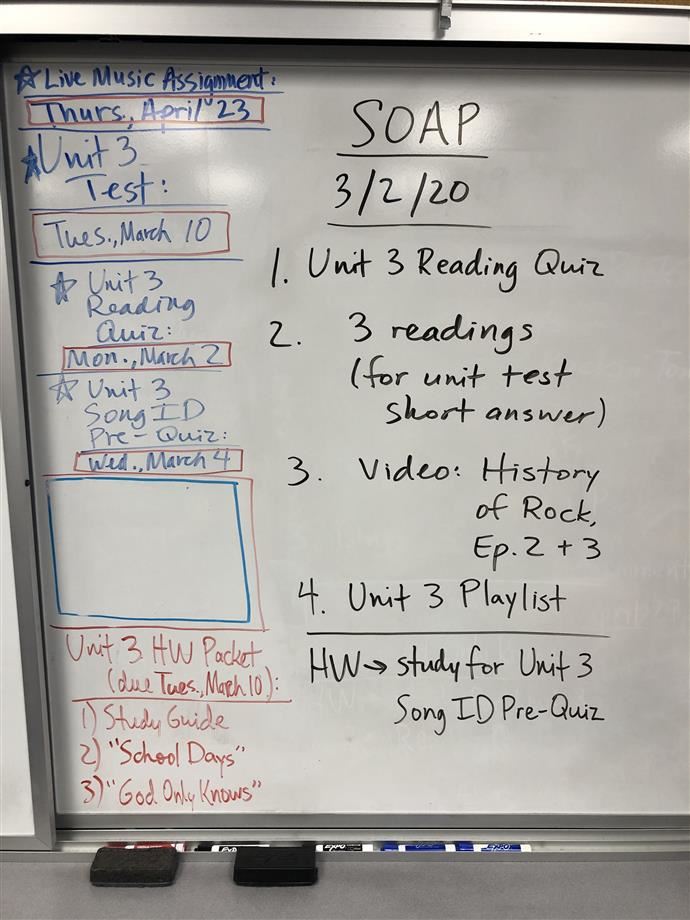 ☆ Live Music Assignment:
Thurs., April 23
☆ Unit 3
Test:
Tues., March 10
☆ Unit 3
Reading
Quiz:
Mon., March 2
☆ Unit 3
Song ID
Pre-Quiz:
Wed., March 4
Unit 3 HW Packet
(due Tues., March 10):
1) Study Guide
2) "School Days"
3) "God Only Knows"
SOAP
3/2/20
1. Unit 3 Reading Quiz
2. 3 readings
(for unit test
short answer)
3. Video: History
of Rock,
Ep. 2 + 3
4. Unit 3 Playlist
HW → study for Unit 3
Song ID Pre-Quiz
EXPO
EXPO